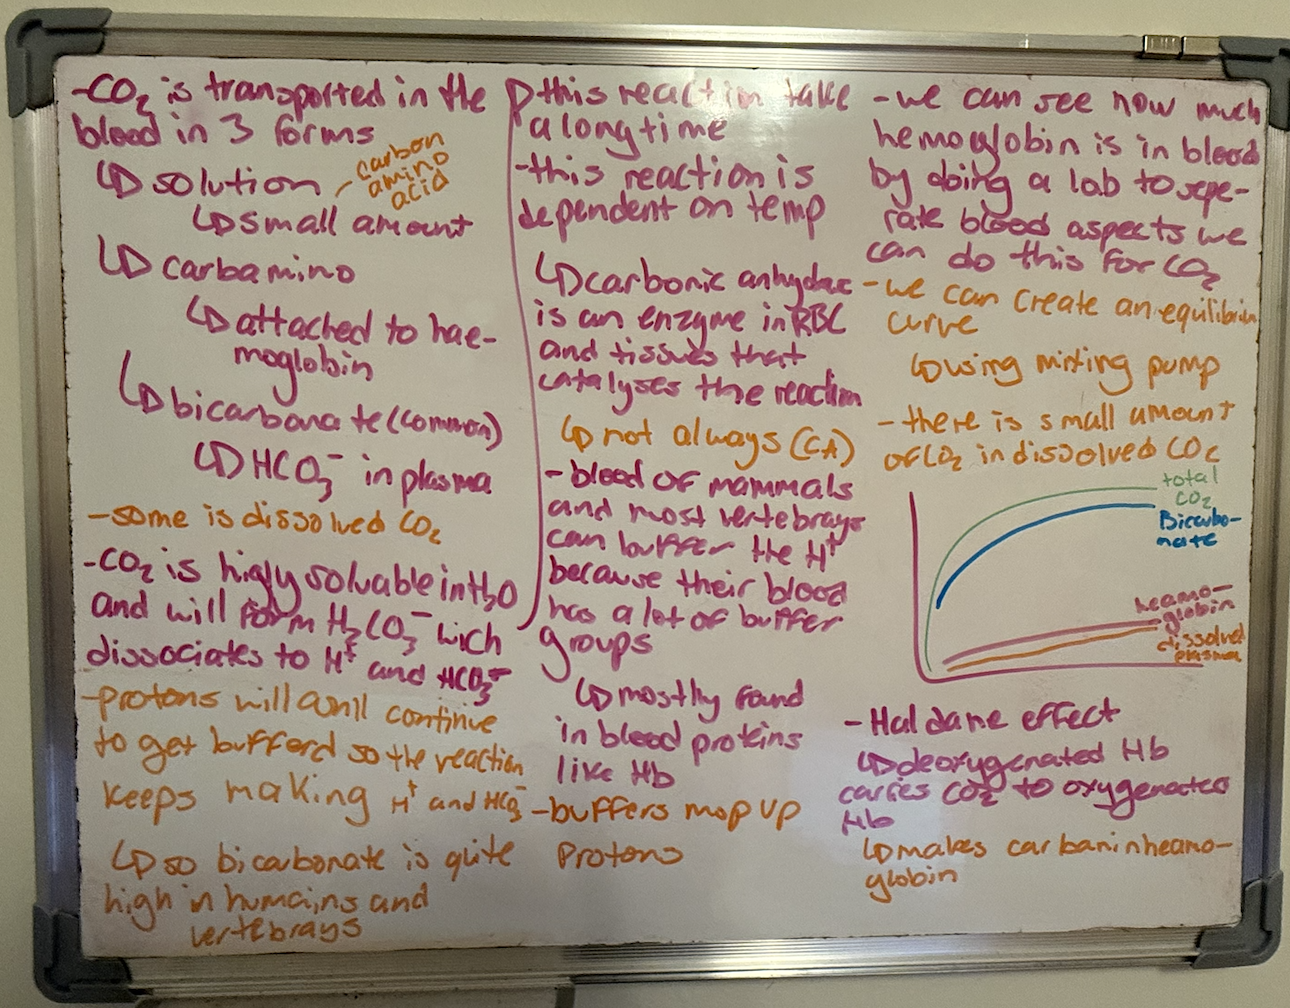 -CO2 is transported in the
blood in 3 forms
↳solution - carbon
amino
acid
↳small amount
↳carbamino
↳attached to hae-
moglobin
↳bicarbonate (common)
↳HCO3⁻ in plasma
-some is dissolved CO2
-CO2 is higly soluable in H2O
and will form H2CO3⁻ wich
dissociates to H⁺ and HCO3⁻
-protons will continue
to get bufferd so the reaction
keeps making H⁺ and HCO3⁻
↳so bicarbonate is quite
high in humains and
vertebrays
↳this reaction take
a long time
-this reaction is
dependent on temp
↳carbonic anhydase
is an enzyme in RBC
and tissues that
catalyses the reaction
↳not always (CA)
-blood of mammals
and most vertebrays
can buffer the H⁺
because their blood
has a lot of buffer
groups
↳mostly found
in blood proteins
like Hb
-buffers mop up
protons
-we can see how much
hemoglobin is in blood
by doing a lab to sepe-
rate blood aspects we
can do this for CO2
-we can create an equilibrium
curve
↳using mixting pump
-there is small amount
of CO2 in dissolved CO2
total
CO2
Bicarbo-
nate
heamo-
globin
dissolved
plasma
-Haldane effect
↳deoxygenated Hb
carries CO2 to oxygenated
Hb
↳makes carbaninheamo-
globin